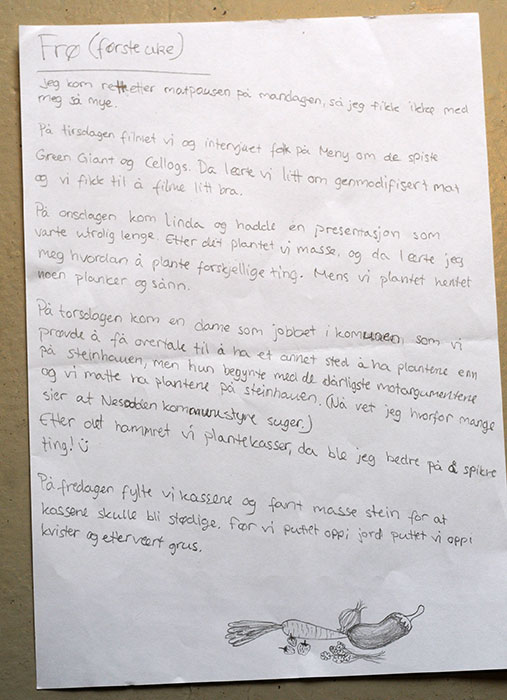 Frø (første uke)
Jeg kom rett etter matpausen på mandagen, så jeg fikk ikke med
meg så mye.
På tirsdagen filmet vi og intervjuet folk på Meny om de spiste
Green Giant og Cellogs. Da lærte vi litt om genmodifisert mat
og vi fikk til å filme litt bra.
På onsdagen kom Linda og hadde en presentasjon som
varte utrolig lenge. Etter det plantet vi masse, og da lærte jeg
meg hvordan å plante forskjellige ting. Mens vi plantet hentet
noen planker og sånn.
På torsdagen kom en dame som jobbet i kommunen, som vi
prøvde å få overtale til å ha et annet sted å ha plantene enn
på steinhauen, men hun begynte med de dårligste motargumentene
og vi måtte ha plantene på steinhauen. (Nå vet jeg hvorfor mange
sier at Nesodden kommunustyre suger.)
Etter det hamret vi plantekasser, da ble jeg bedre på å spikre
ting! ☺
På fredagen fylte vi kassene og fant masse stein for at
kassene skulle bli stødige. Før vi puttet oppi jord puttet vi oppi
kvister og ettervært grus.